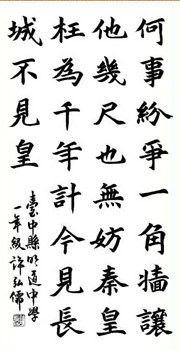 何事紛爭一角墻讓
他幾尺也無妨秦皇
枉為千年計今見長
城不見皇
臺中縣明道中學
一年級許弘儒